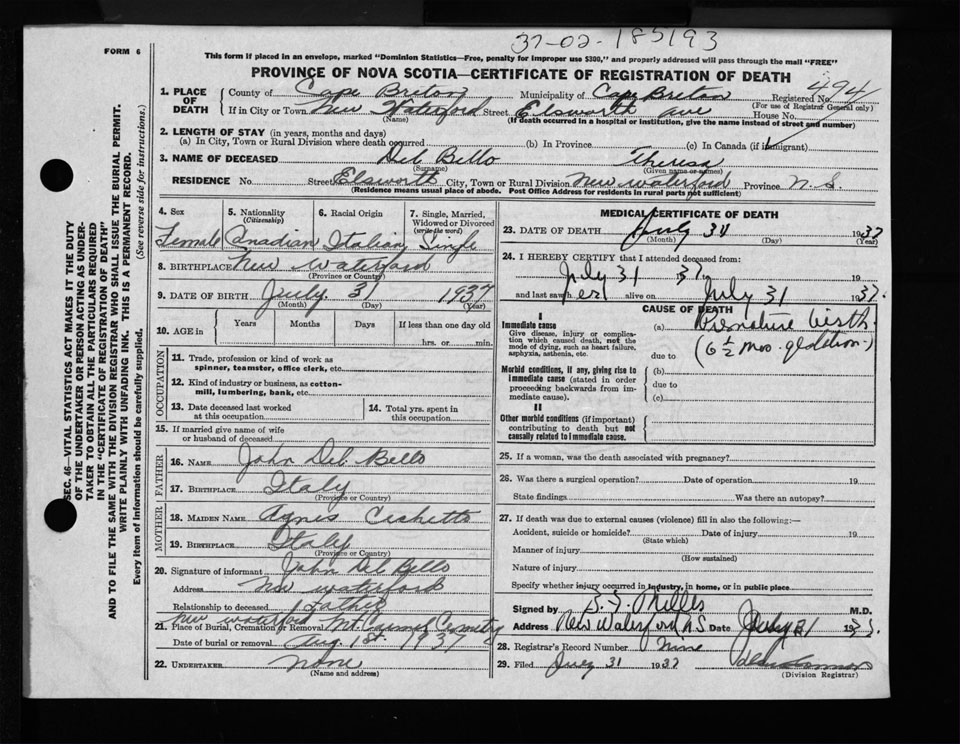 37-02-185193
FORM 6
This form if placed in an envelope, marked "Dominion Statistics—Free, penalty for improper use $300," and properly addressed will pass through the mail "FREE"
PROVINCE OF NOVA SCOTIA—CERTIFICATE OF REGISTRATION OF DEATH
1. PLACE OF DEATH County of Cape Breton Municipality of Cape Breton Registered No. 494
(For use of Registrar General only)
If in City or Town New Waterford Street Elsworth Ave House No.
(Name) (If death occurred in a hospital or institution, give the name instead of street and number)
2. LENGTH OF STAY (in years, months and days)
(a) In City, Town or Rural Division where death occurred (b) In Province (c) In Canada (if immigrant)
3. NAME OF DECEASED Del Bello Theresa
(Surname) (Given name or names)
RESIDENCE No. Street Elsworth City, Town or Rural Division New Waterford Province N.S
(Residence means usual place of abode. Post Office Address for residents in rural parts not sufficient)
4. Sex 5. Nationality 6. Racial Origin 7. Single, Married,
(Citizenship) Widowed or Divorced
(write the word)
Female Canadian Italian Single
8. BIRTHPLACE New Waterford
(Province or Country)
9. DATE OF BIRTH July 31 1937
(Month) (Day) (Year)
10. AGE in Years Months Days If less than one day old
hrs. or min.
OCCUPATION
11. Trade, profession or kind of work as
spinner, teamster, office clerk, etc.
12. Kind of industry or business, as cotton-
mill, lumbering, bank, etc.
13. Date deceased last worked
at this occupation
14. Total yrs. spent in
this occupation
15. If married give name of wife
or husband of deceased
FATHER
16. NAME John Del Bello
17. BIRTHPLACE Italy
(Province or Country)
MOTHER
18. MAIDEN NAME Agnes
19. BIRTHPLACE Italy
(Province or Country)
20. Signature of informant John Del Bello
Address New Waterford
Relationship to deceased Father
New Waterford
21. Place of Burial, Cremation or Removal Mt. Carmel Cemetery
Date of burial or removal Aug. 1st 1937
22. UNDERTAKER none
(Name and address)
MEDICAL CERTIFICATE OF DEATH
23. DATE OF DEATH July 31 1937
(Month) (Day) (Year)
24. I HEREBY CERTIFY that I attended deceased from:
July 31 37 19
and last saw her alive on July 31 1937.
CAUSE OF DEATH
I
Immediate cause
Give disease, injury or complica-
tion which caused death, not the
mode of dying, such as heart failure,
asphyxia, asthenia, etc.
(a) Premature birth
due to (6 1/2 mos. gestation.)
Morbid conditions, if any, giving rise to
immediate cause (stated in order
proceeding backwards from im-
mediate cause).
(b)
due to
(c)
II
Other morbid conditions (if important)
contributing to death but not
causally related to immediate cause.
25. If a woman, was the death associated with pregnancy?
26. Was there a surgical operation? Date of operation 19
State findings Was there an autopsy?
27. If death was due to external causes (violence) fill in also the following:—
Accident, suicide or homicide? Date of injury 19
(State which)
Manner of injury
(How sustained)
Nature of injury
Specify whether injury occurred in industry, in home, or in public place
Signed by Miller M.D.
Address New Waterford N.S Date July 31
28. Registrar's Record Number Nine
29. Filed July 31 1937
(Division Registrar)
SEC. 46—VITAL STATISTICS ACT MAKES IT THE DUTY
OF THE UNDERTAKER OR PERSON ACTING AS UNDER-
TAKER TO OBTAIN ALL THE PARTICULARS REQUIRED
IN THE "CERTIFICATE OF REGISTRATION OF DEATH"
AND TO FILE THE SAME WITH THE DIVISION REGISTRAR WHO SHALL ISSUE THE BURIAL PERMIT.
WRITE PLAINLY WITH UNFADING INK. THIS IS A PERMANENT RECORD.
Every item of information should be carefully supplied. (See reverse side for instructions.)